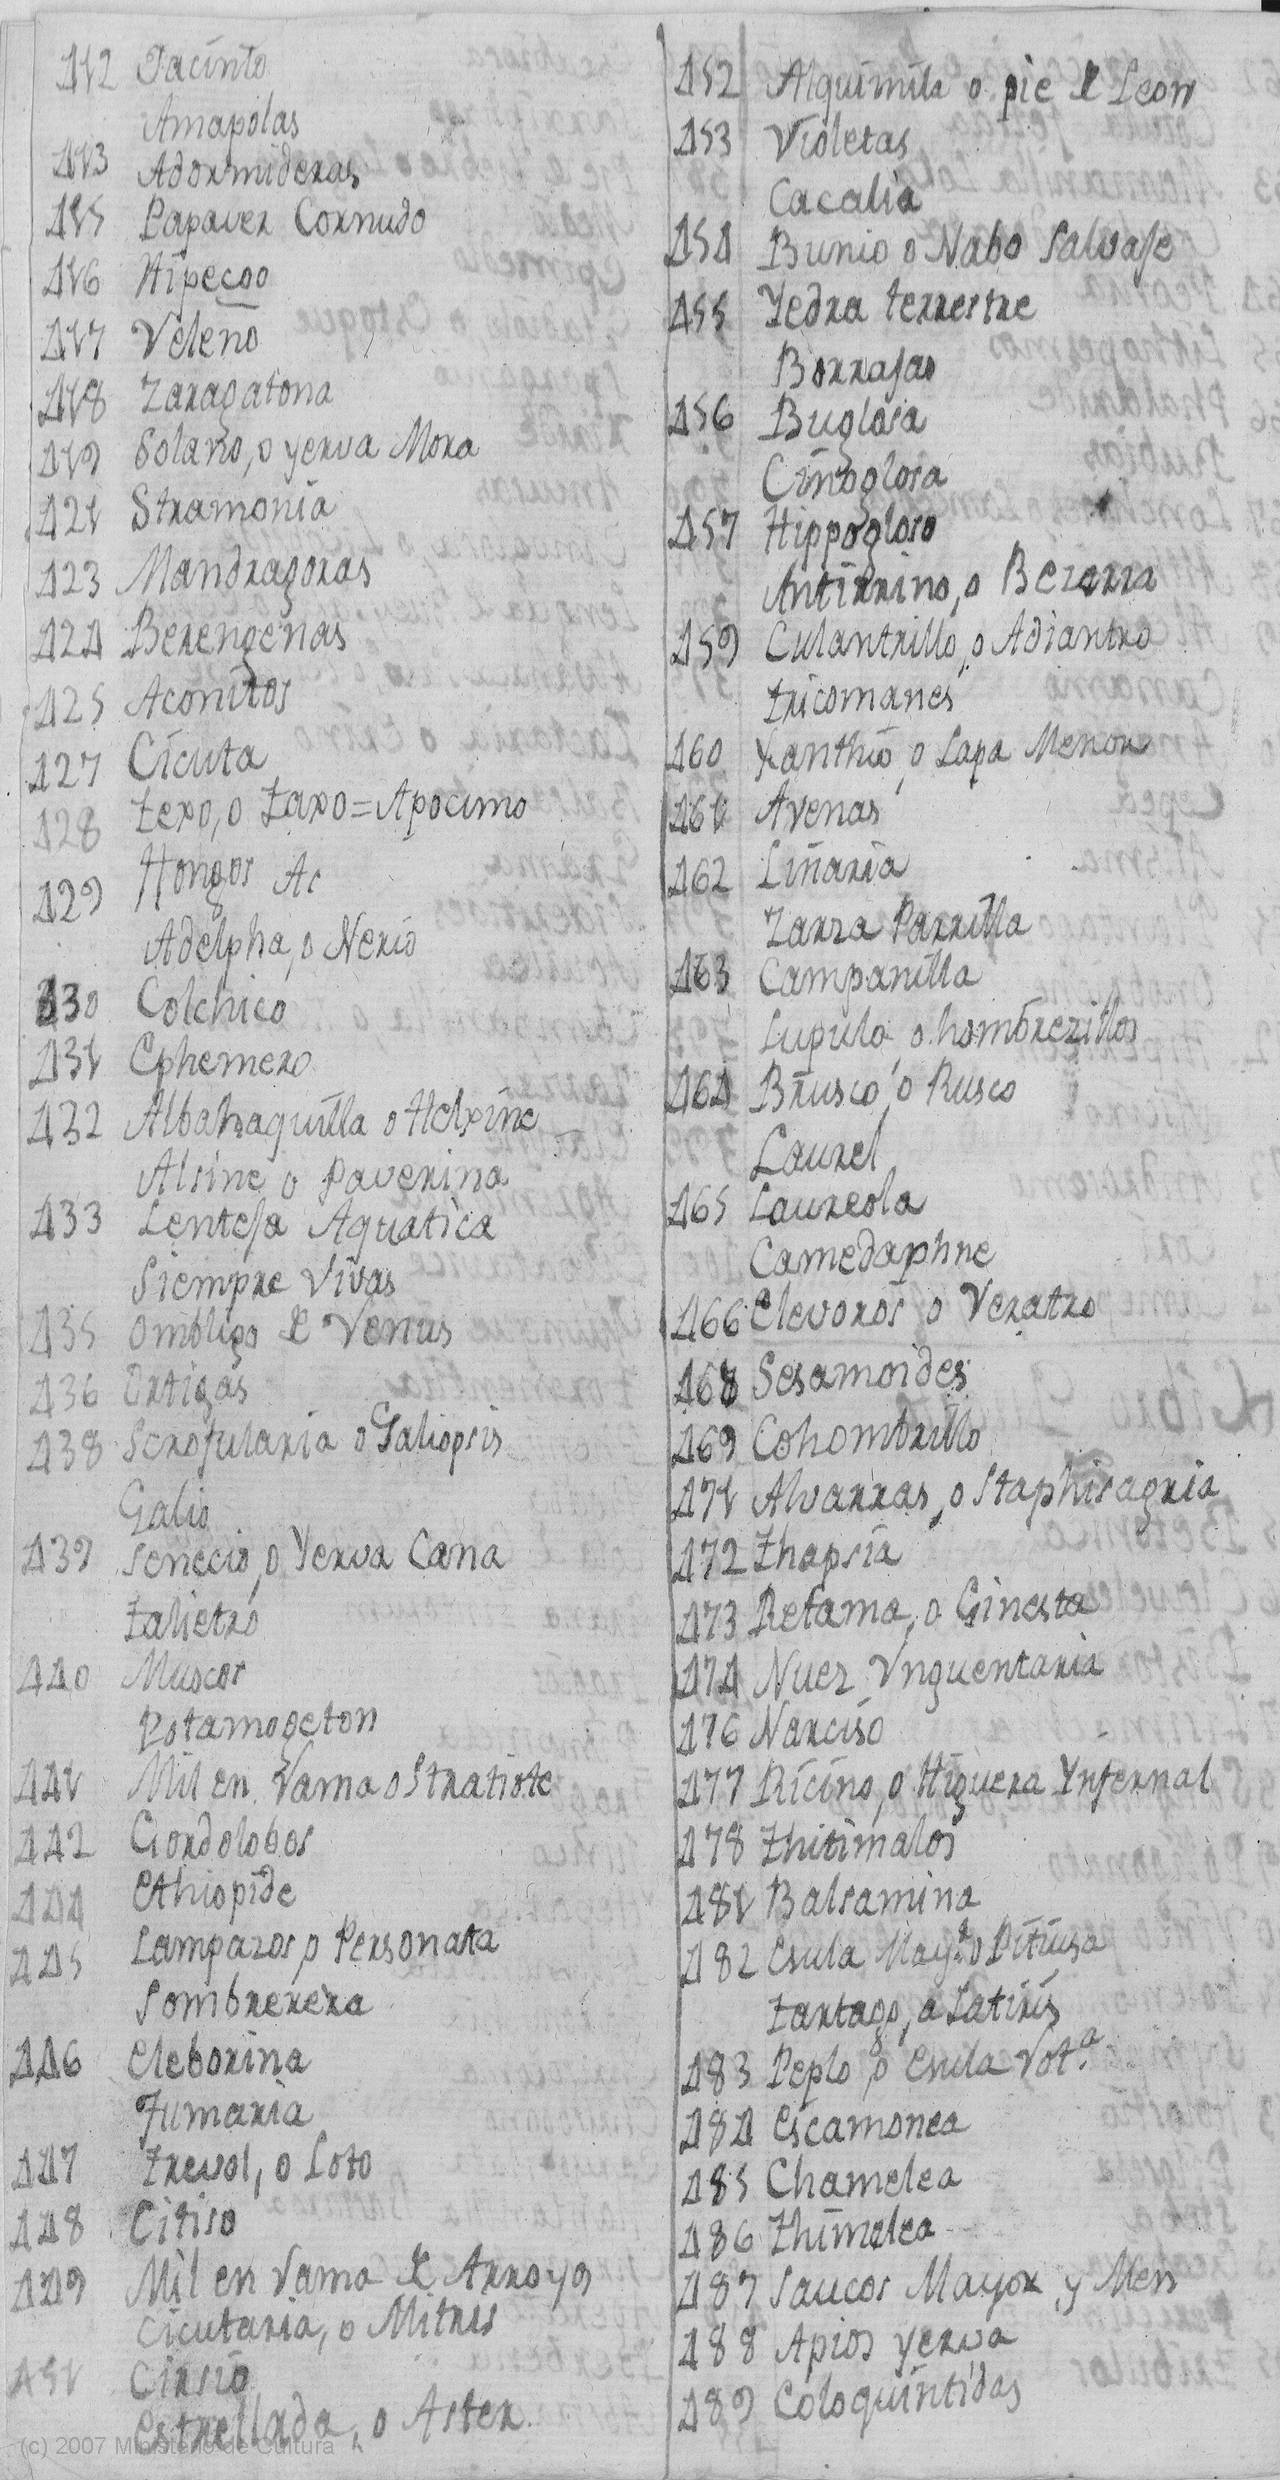 412 Jacinto
Amapolas
413 Adormideras
415 Papaver Cornudo
416 Hipecoo
417 Veleno
418 Zaragatona
419 Solano, o yerva Mora
421 Stramonia
423 Mandragoras
424 Berengenas
425 Aconitos
427 Cicuta
428 texo, o taxo = Apocimo
429 Hongos &c
Adelpha, o Nerio
430 Colchico
431 Ephemero
432 Albahaquilla o Helxine
Alsine o Paverina
433 Lenteja Aquatica
Siempre Vivas
435 Ombligo de Venus
436 Ortigas
438 Scrofularia o Galiopsis
Galio
439 Senecio, o Yerva Cana
talietro
440 Muscos
Potamogeton
441 Mil en Rama o Stratiote
442 Gordolobos
444 Ethiopide
445 Lampazos, o Personata
Sombrerera
446 Eleborina
Fumaria
447 trevol, o Loto
448 Citiso
449 Mil en Rama de Arroyos
Cicutaria, o Mitris
451 Cirsio
Estrellada, o Aster.
452 Alquimila o pie de Leon
453 Violetas
Cacalia
454 Bunio o Nabo Salvaje
455 Yedra terrestre
Borrajas
456 Buglosa
Cinoglosa
457 Hippogloso
Antirrino, o Bezerra
459 Culantrillo, o Adiantro
tricomanes
460 Xanthio, o Lapa Menor
461 Avenas
462 Linaria
Zarza Parrilla
463 Campanilla
Lupulo, o hombrezillos
464 Brusco, o Rusco
Laurel
465 Laureola
Camedaphne
466 Elevoros o Veratro
468 Sesamoides
469 Cohombrillo
471 Alvarras, o Staphisagria
472 thapsia
473 Retama, o Ginesta
474 Nuez Unguentaria
476 Narciso
477 Ricino, o Higuera Ynfernal
478 thitimalos
481 Balsamina
482 Esula Mayr. o Pitiusa
tartago, o Latiris
483 Peplo, o Esula Rot.a
484 Escamonea
485 Chamelea
486 thimelea
487 Saucos Mayor y Men
488 Apios yerva
489 Coloquintidas
(c) 2007 Ministerio de Cultura